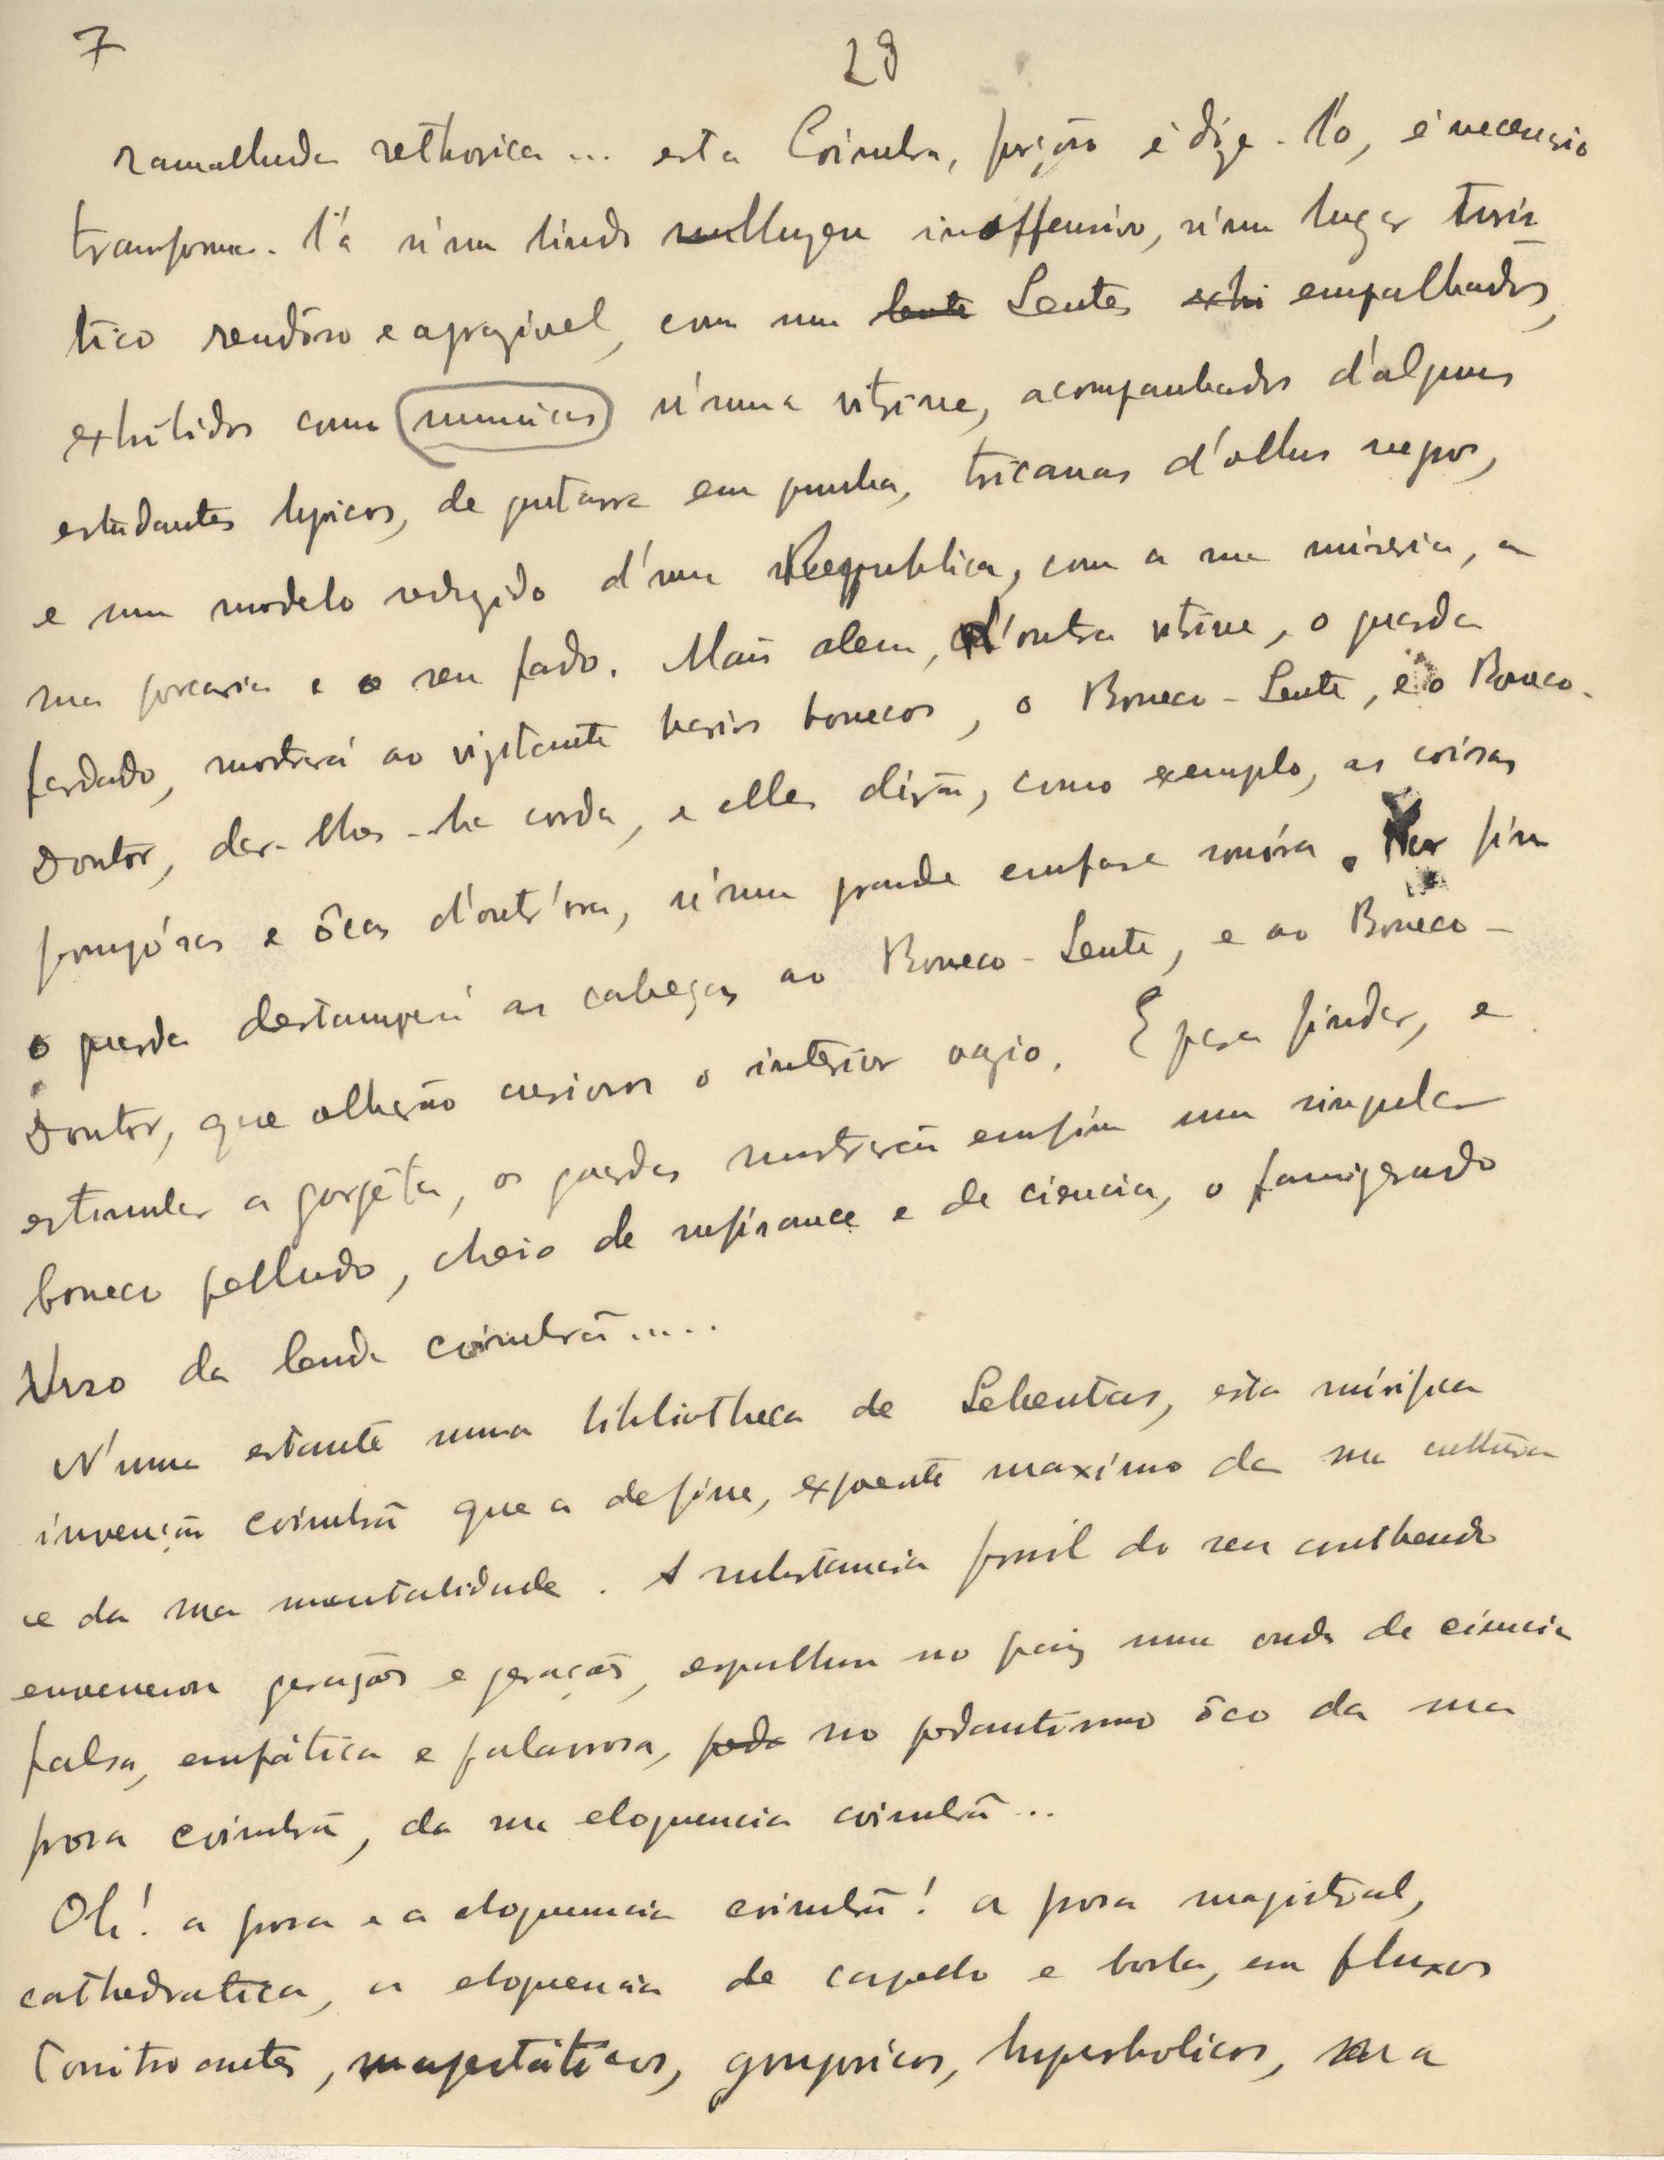 7
28
ramalhuda rethorica ... esta Coimbra, forçoso é dize-l'o, é necessario
transforma-l'a n'um lindo inoffensivo, n'um lugar turis
tico rendôso e aprazivel, com uns lente Lentes exhi empalhados,
exhibidos como mumias n'uma vitrine, acompanhados d'alguns
estudantes typicos, de guitarra em punho, tricanas d'olhos negros,
e um modelo reduzido d'uma Republica, com a sua miseria, a
sua porcaria e o seu fado. Mais alem, n'outra vitrine, o guarda
fardado, mostrará ao vizitante varios bonecos, o Boneco-Lente, e o Boneco-
Doutor, dar-lhes-ha corda, e elles dirão, como exemplo, as coisas
pompósas e ôcas d'outr'ora, n'uma grande emfase sonóra. Por fim
o guarda destampará as cabeças ao Boneco-Lente, e ao Boneco-
Doutor, que olharão curiosos o interior vazio. E para findar, e
estimular a gorgêta, os guardas mostrarão emfim um singular
boneco pelludo, cheio de e de ciencia, o famigerado
Urso da lenda coimbrã.....
N'uma estante uma bibliotheca de Sebentas, esta mirifica
invenção coimbrã que a define, expoente maximo da sua cultura
e da sua mentalidade. A substancia fossil do seu conthendo
envenenou gerações e gerações, espalhou no paiz uma onda de ciencia
falsa, emfática e palavrosa, peda no pedantismo ôco da sua
prosa coimbrã, da sua eloquencia coimbrã...
Oh! a prosa e a eloquencia coimbrã! a prosa magistral,
cathedratica, a eloquencia de capello e borla, em fluxos
tonitroantes, magestáticos, gongoricos, hyperbolicos, sua